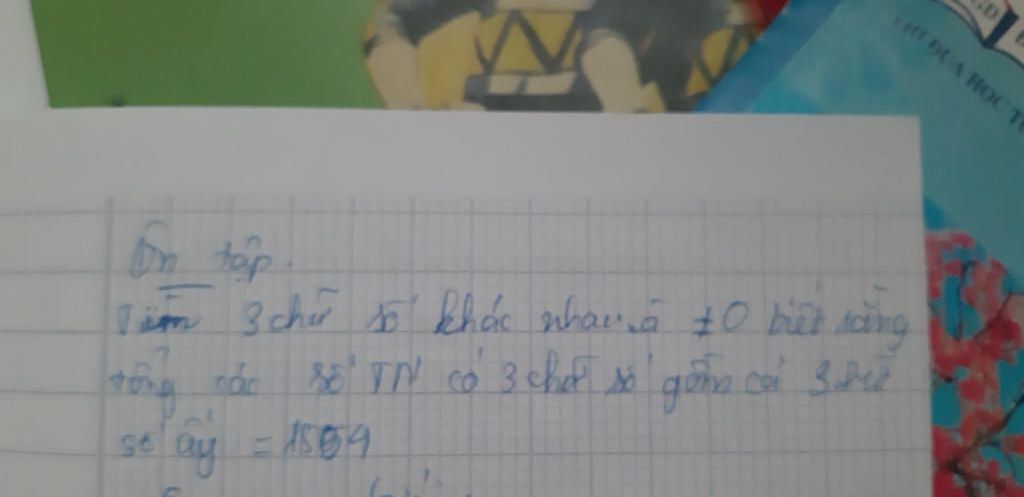 GD
THI ĐUA HỌC TỐ
Ôn tập.
Tìm 3 chữ số khác nhau và ≠0 biết rằng
tổng các số TN có 3 chữ số gồm cả 3 chữ
số ấy = 1554